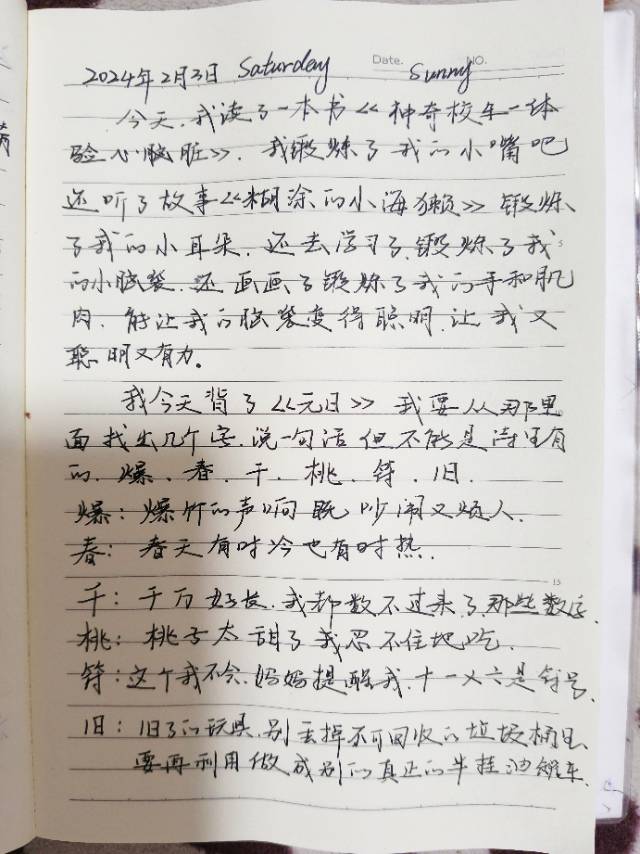 Date. NO.
2024年2月3日 Saturday Sunny
今天,我读了一本书《神奇校车一体
验心脑脏》,我锻炼了我的小嘴吧
还听了故事《糊涂的小海獭》锻炼
了我的小耳朵,还去学习了,锻炼了我
的小脑袋,还画画了锻炼了我的手和肌
肉,能让我的脑袋变得聪明,让我又
聪明又有力。
我今天背了《元日》我要从那里
面找出几个字,说一句话但不能是诗里有
的,爆、春、千、桃、符、旧.
爆:爆竹的声响既吵闹又烦人.
春:春天有时冷也有时热.
15
千:千万好长,我都数不过来了,那些数字.
桃:桃子太甜了我忍不住地吃.
符:这个我不会,妈妈提醒我,十一乂六是符号,
旧:旧了的玩具,别丢掉不可回收的垃圾桶里,
要再利用做成别的真正的半挂油罐车.